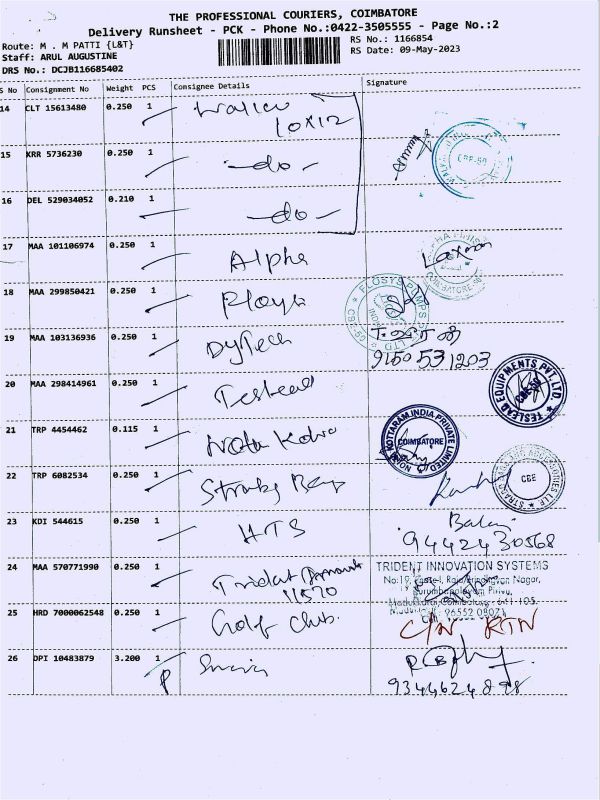 THE PROFESSIONAL COURIERS, COIMBATORE
Delivery Runsheet - PCK - Phone No.:0422-3505555 - Page No.:2
Route: M . M PATTI {L&T}
RS No.: 1166854
Staff: ARUL AUGUSTINE
RS Date: 09-May-2023
DRS No.: DCJB116685402
S No Consignment No Weight PCS Consignee Details Signature
14 CLT 15613480 0.250 1
10X12
15 KRR 5736230 0.250 1 -do-
CBE-50
16 DEL 529034052 0.210 1 -do-
17 MAA 101106974 0.250 1 Alpha Laxman
18 MAA 299850421 0.250 1
FLOSYS PUMPS
19 MAA 103136936 0.250 1 DyTech
9150531203
20 MAA 298414961 0.250 1 Teslead
TESLEAD EQUIPMENTS PVT. LTD
21 TRP 4454462 0.115 1
KOTTARAM INDIA PRIVATE LIMITED
COIMBATORE
22 TRP 6082534 0.250 1
CBE
23 KDI 544615 0.250 1 HTS
9442430568
24 MAA 570771990 0.250 1 Trident
11570
TRIDENT INNOVATION SYSTEMS
25 HRD 7000062548 0.250 1 Golf Club. C/N RTN
26 DPI 10483879 3.200 1
P
9344624898